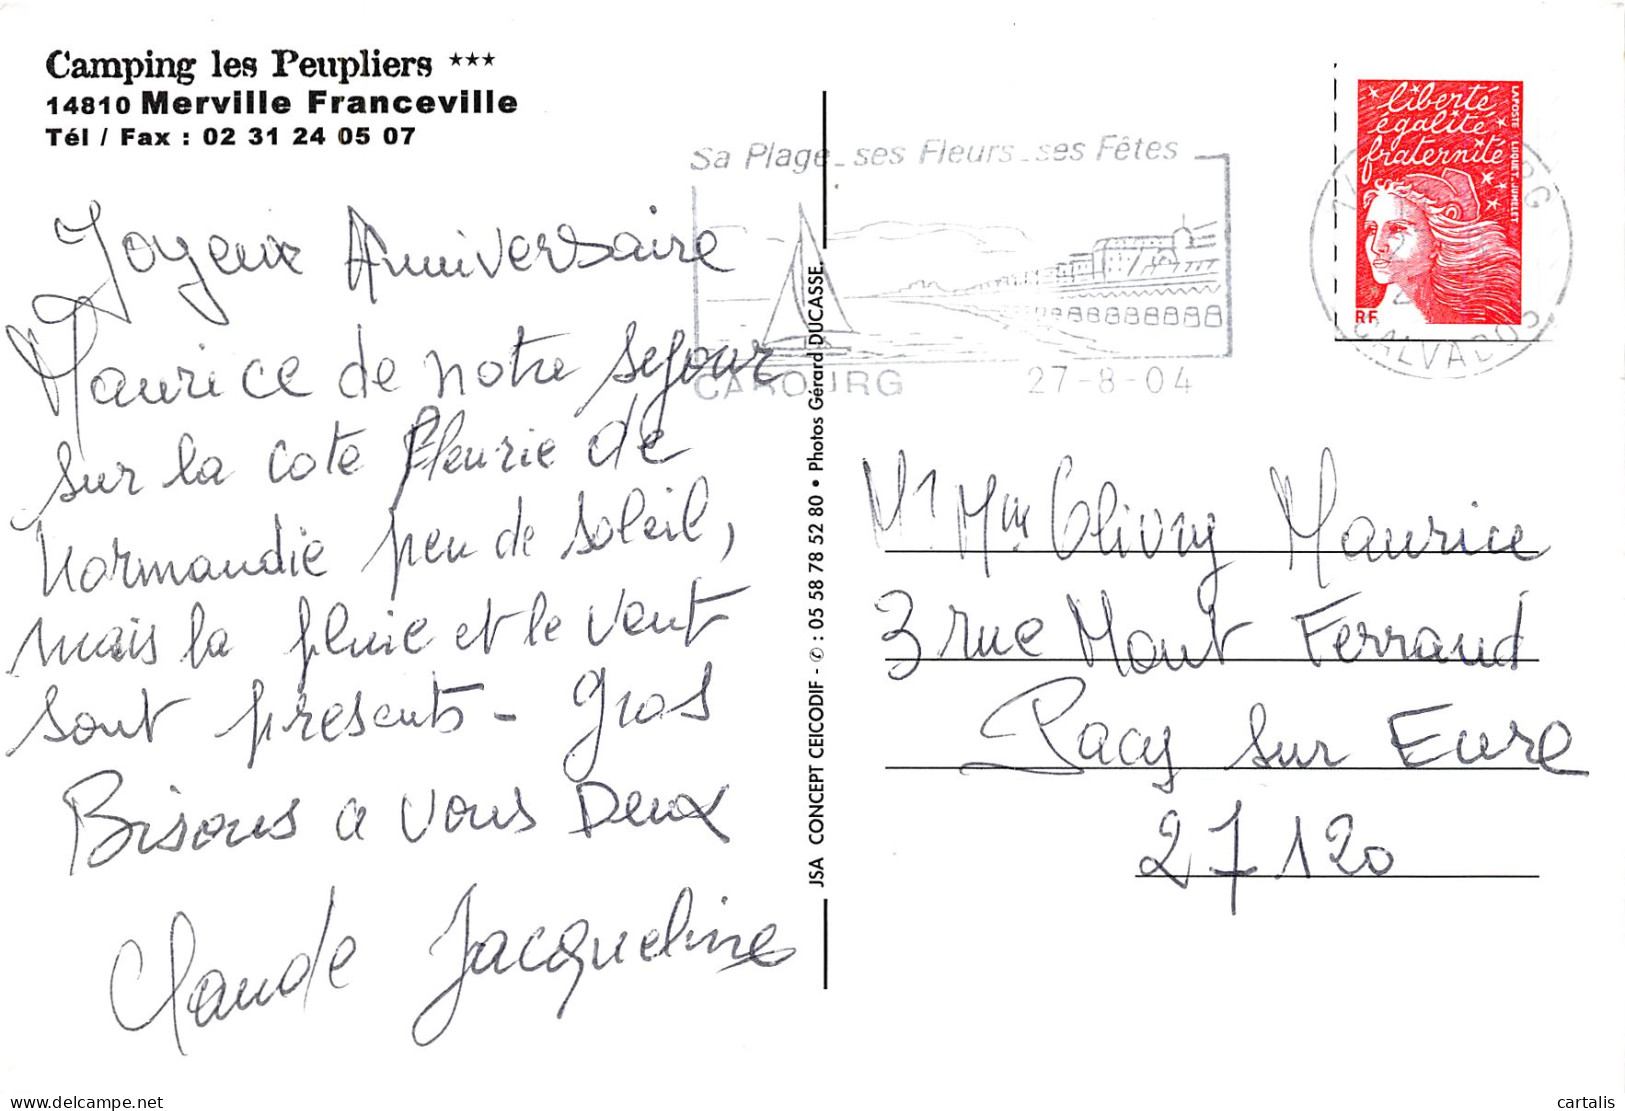 Camping les Peupliers ***
14810 Merville Franceville
Tél / Fax : 02 31 24 05 07
Joyeux Anniversaire
Maurice de notre sejour
sur la cote fleurie de
Normandie peu de soleil,
mais la pluie et le vent
sont presents - gros
Bisous a vous Deux
Claude Jacqueline
JSA CONCEPT CEICODIF - ✆ : 05 58 78 52 80 • Photos Gérard DUCASSE.
Sa Plage - ses Fleurs - ses Fêtes
CABOURG 27-8-04
liberté
égalité
fraternité
RF
LA POSTE LUQUET-JUMELET
CALVADOS
Mr Mme Olivry Maurice
3 rue Mont Ferrand
Pacy sur Eure
27120
www.delcampe.net
cartalis